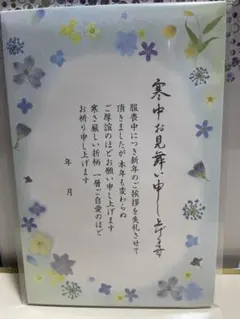 寒中お見舞い申し上げます
服喪中につき新年のご挨拶を失礼させて
頂きましたが本年も変わらぬ
ご厚誼のほどお願い申し上げます
寒さ厳しい折柄 一層ご自愛のほど
お祈り申し上げます
年 月